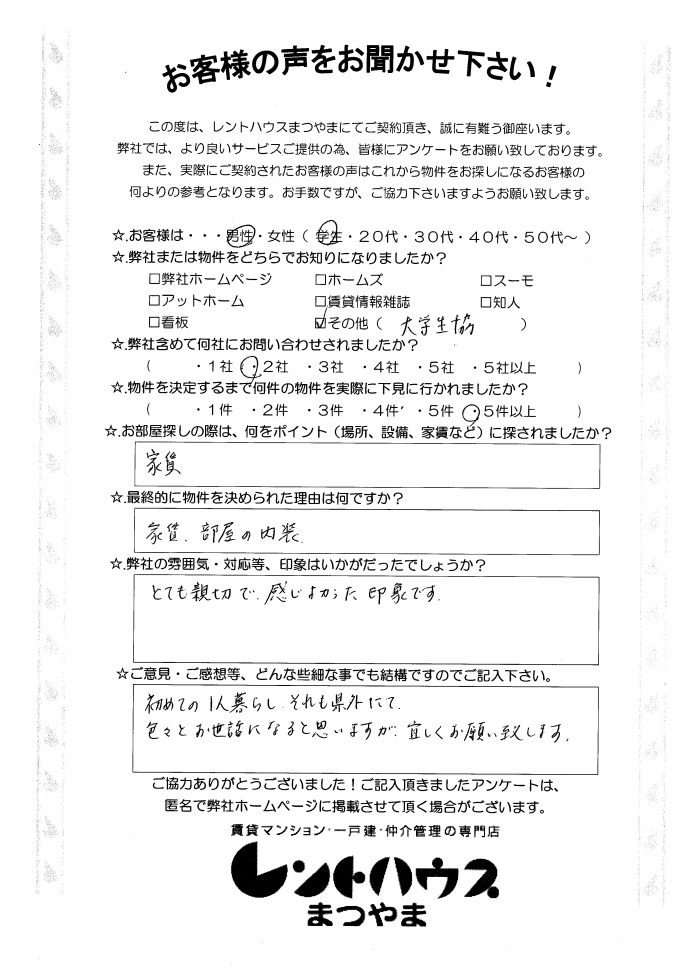 お客様の声をお聞かせ下さい！
この度は、レントハウスまつやまにてご契約頂き、誠に有難う御座います。
弊社では、より良いサービスご提供の為、皆様にアンケートをお願い致しております。
また、実際にご契約されたお客様の声はこれから物件をお探しになるお客様の
何よりの参考となります。お手数ですが、ご協力下さいますようお願い致します。
☆.お客様は・・・男性・女性（ 学生・２０代・３０代・４０代・５０代～ ）
☆.弊社または物件をどちらでお知りになりましたか？
□弊社ホームページ □ホームズ □スーモ
□アットホーム □賃貸情報雑誌 □知人
□看板 ☑その他（ 大学生協 ）
☆.弊社含めて何社にお問い合わせされましたか？
（ ・１社 ・２社 ・３社 ・４社 ・５社 ・５社以上 ）
☆.物件を決定するまで何件の物件を実際に下見に行かれましたか？
（ ・１件 ・２件 ・３件 ・４件 ・５件 ・５件以上 ）
☆.お部屋探しの際は、何をポイント（場所、設備、家賃など）に探されましたか？
家賃
☆.最終的に物件を決められた理由は何ですか？
家賃、部屋の内装。
☆.弊社の雰囲気・対応等、印象はいかがだったでしょうか？
とても親切で、感じよかった印象です。
☆ご意見・ご感想等、どんな些細な事でも結構ですのでご記入下さい。
初めての1人暮らし、それも県外にて、
色々とお世話になると思いますが、宜しくお願い致します。
ご協力ありがとうございました！ご記入頂きましたアンケートは、
匿名で弊社ホームページに掲載させて頂く場合がございます。
賃貸マンション・一戸建・仲介管理の専門店
レントハウス
まつやま